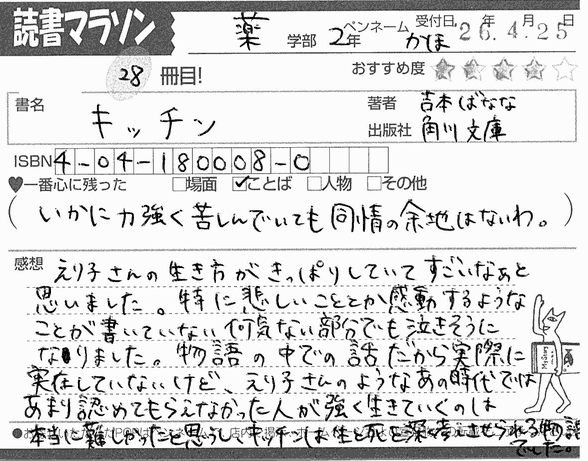 読書マラソン
薬 学部 2年 ペンネーム かほ 受付日 26年4月25日
28 冊目! おすすめ度 ★★★★☆
書名 キッチン 著者 吉本ばなな
出版社 角川文庫
ISBN 4-04-180008-0
♥一番心に残った □場面 ☑ことば □人物 □その他
(いかに力強く苦しんでいても同情の余地はないわ。)
感想 えり子さんの生き方がきっぱりしていてすごいなあと
思いました。特に悲しいこととか感動するような
ことが書いていない何気ない部分でも泣きそうに
なりました。物語の中での話だから実際に
実在していないけど、えり子さんのようなあの時代では
あまり認めてもらえなかった人が強く生きていくのは
本当に難しかったと思うし、キッチンは生と死を深く考えさせられる物語
でした。